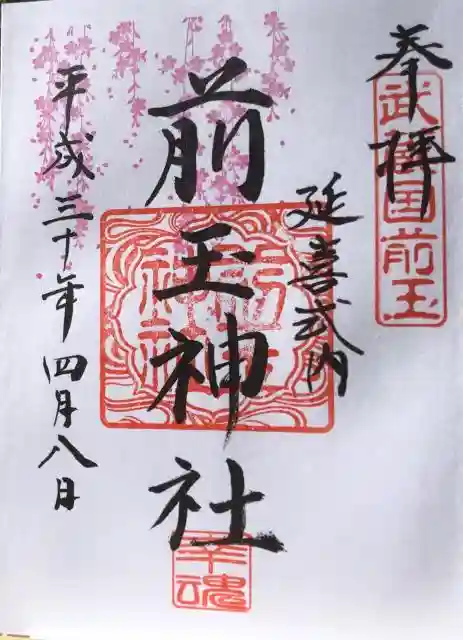 奉拝
武蔵国前玉
延喜式内
前玉神社
幸魂
平成三十年四月八日